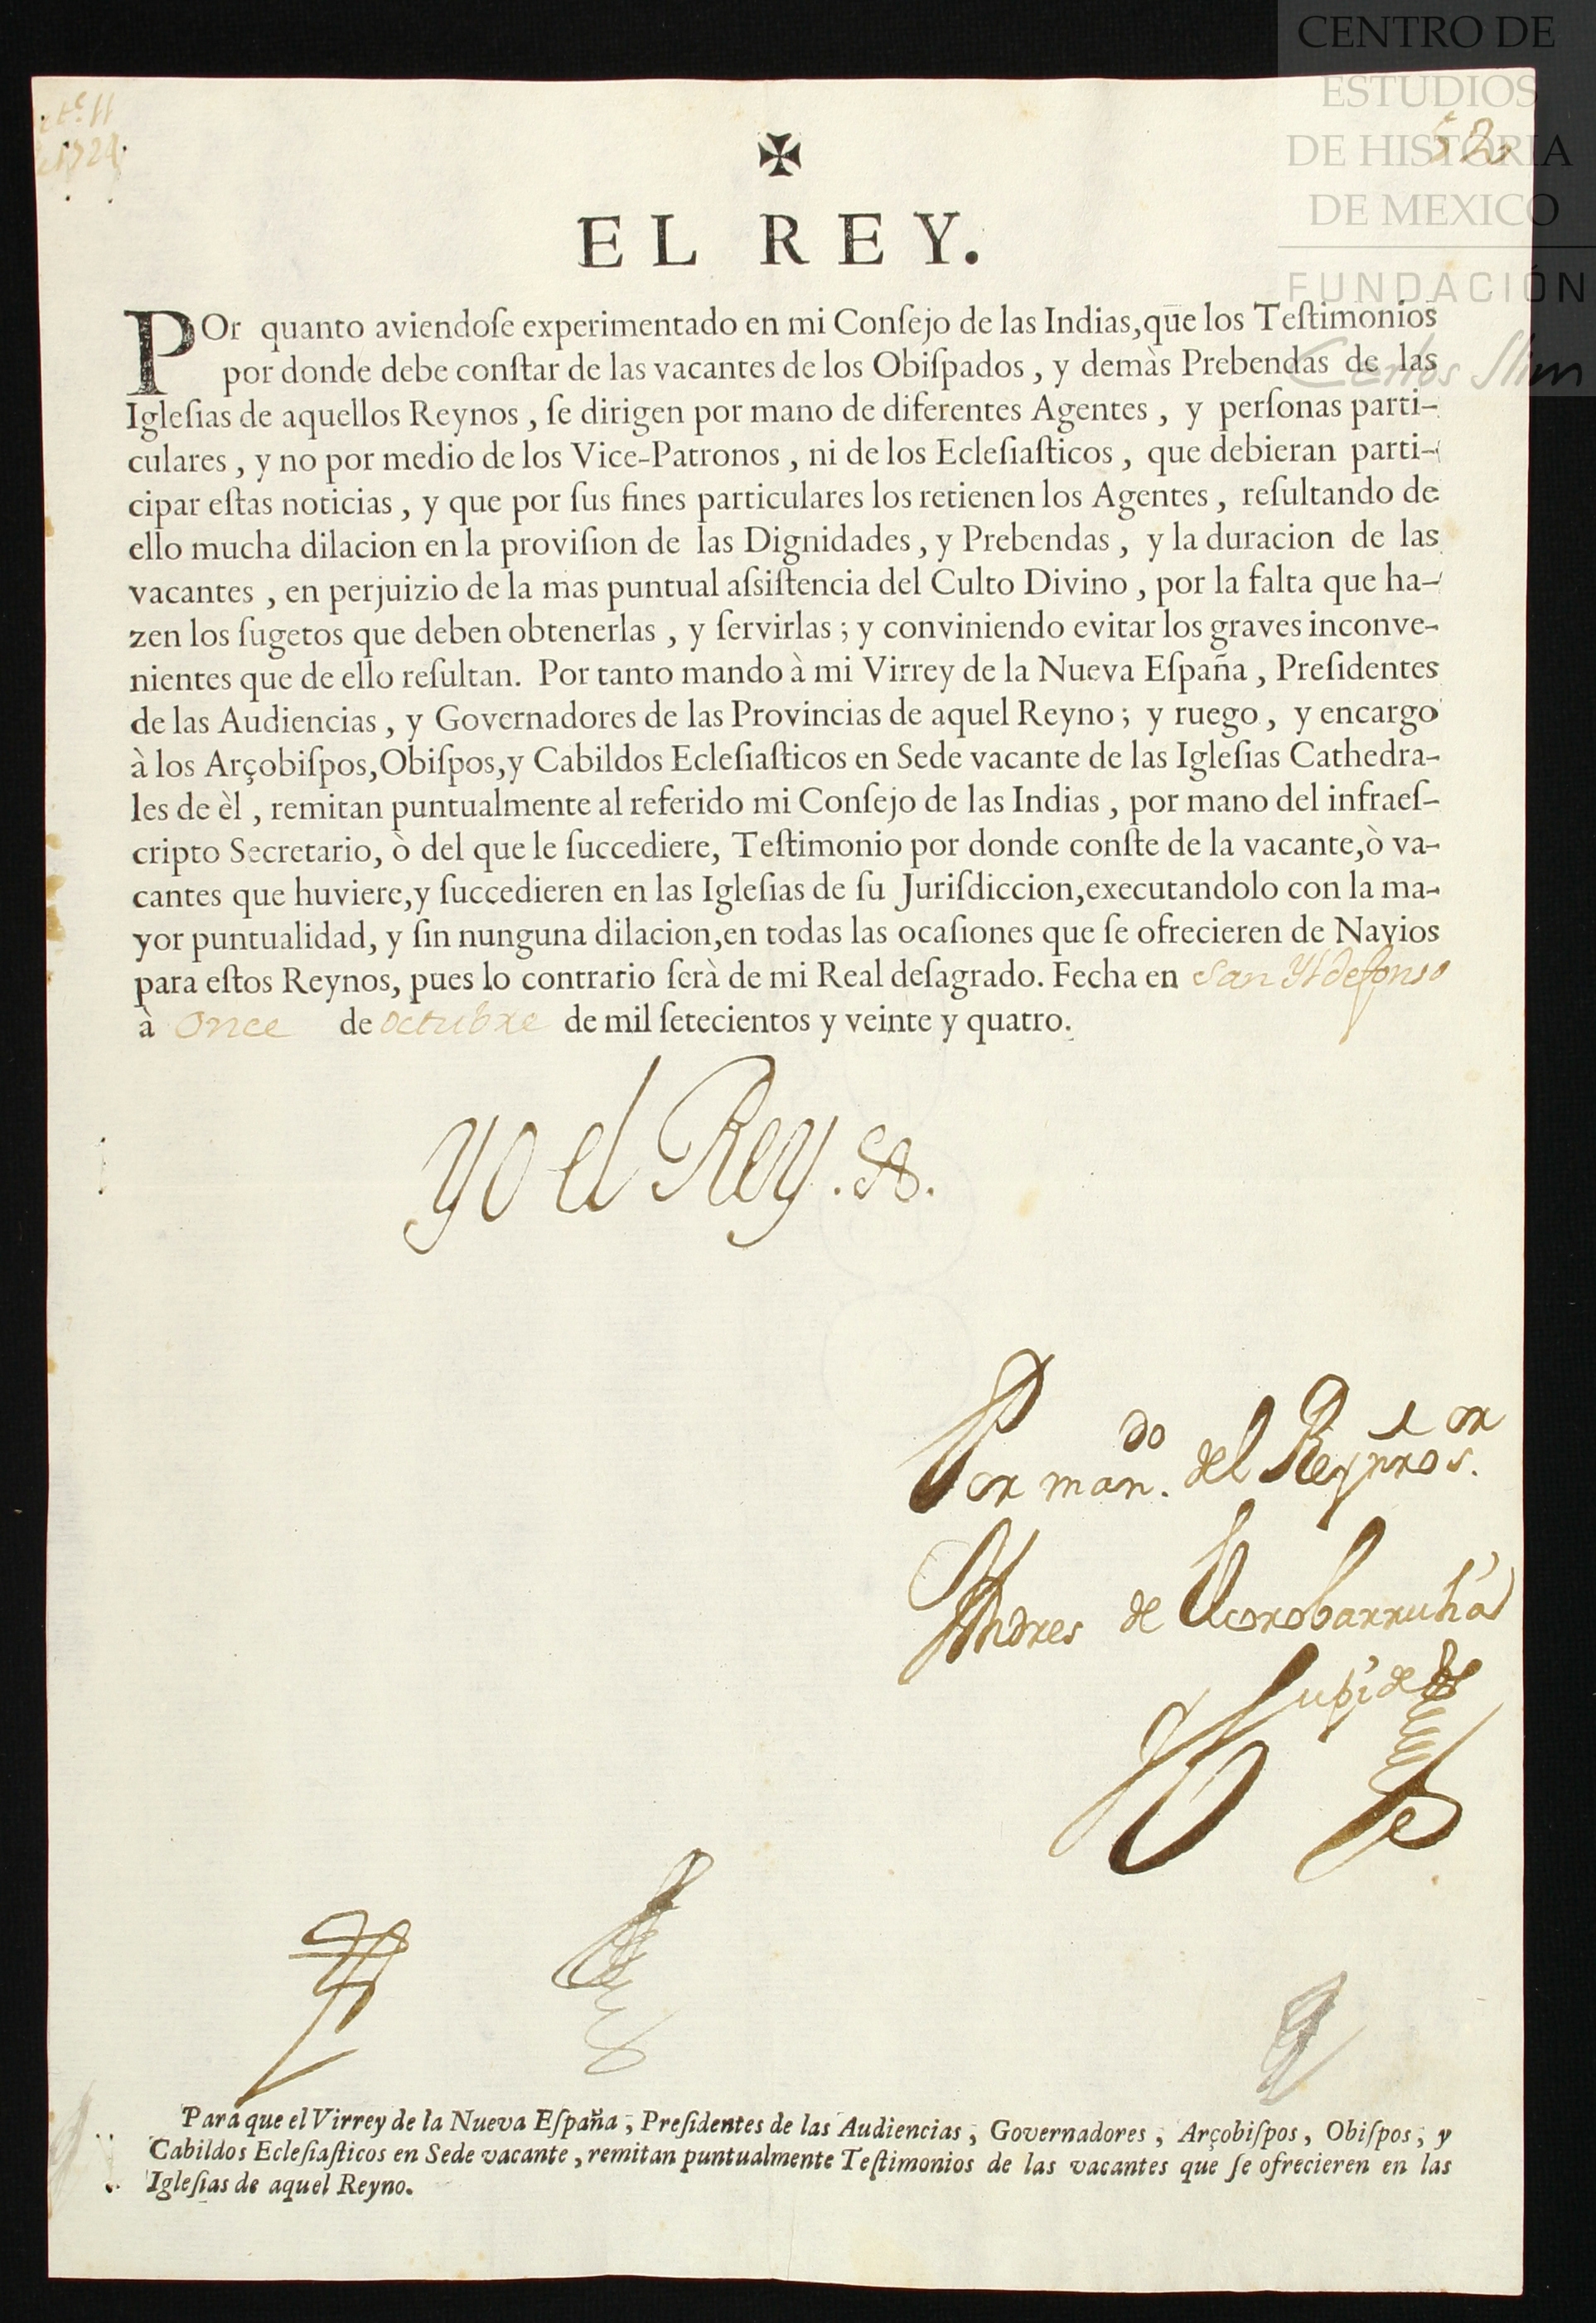 CENTRO DE
ESTUDIOS
DE HISTORIA
DE MEXICO
FUNDACIÓN
Carlos Slim
52
EL REY.
POr quanto aviendoſe experimentado en mi Conſejo de las Indias, que los Teſtimonios
por donde debe conſtar de las vacantes de los Obiſpados , y demàs Prebendas de las
Igleſias de aquellos Reynos , ſe dirigen por mano de diferentes Agentes , y perſonas parti-
culares , y no por medio de los Vice-Patronos , ni de los Ecleſiaſticos , que debieran parti-
cipar eſtas noticias , y que por ſus fines particulares los retienen los Agentes , reſultando de
ello mucha dilacion en la proviſion de las Dignidades , y Prebendas , y la duracion de las
vacantes , en perjuizio de la mas puntual aſsiſtencia del Culto Divino , por la falta que ha-
zen los ſugetos que deben obtenerlas , y ſervirlas ; y conviniendo evitar los graves inconve-
nientes que de ello reſultan. Por tanto mando à mi Virrey de la Nueva Eſpaña , Preſidentes
de las Audiencias , y Governadores de las Provincias de aquel Reyno ; y ruego , y encargo
à los Arçobiſpos, Obiſpos, y Cabildos Ecleſiaſticos en Sede vacante de las Igleſias Cathedra-
les de èl , remitan puntualmente al referido mi Conſejo de las Indias , por mano del infraeſ-
cripto Secretario, ò del que le ſuccediere, Teſtimonio por donde conſte de la vacante, ò va-
cantes que huviere, y ſuccedieren en las Igleſias de ſu Juriſdiccion, executandolo con la ma-
yor puntualidad, y ſin nunguna dilacion, en todas las ocaſiones que ſe ofrecieren de Navios
para eſtos Reynos, pues lo contrario ſerà de mi Real deſagrado. Fecha en San Yldefonso
à Once de octubre de mil ſetecientos y veinte y quatro.
Yo el Rey
Por man.do del Rey nro s.or
Andres de
Para que el Virrey de la Nueva Eſpaña , Preſidentes de las Audiencias , Governadores , Arçobiſpos , Obiſpos , y
Cabildos Ecleſiaſticos en Sede vacante , remitan puntualmente Teſtimonios de las vacantes que ſe ofrecieren en las
Igleſias de aquel Reyno.